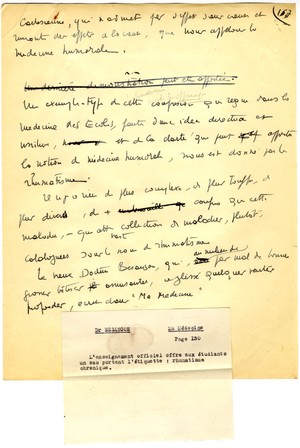 Cartésienne, qui n'admet pas d'effet sans cause et
remonte des effets à la cause, que nous appelons la
médecine humorale.
157
Une dernière démonstration peut être apportée.
Un exemple-type de cette confusion qui règne dans la
médecine des Écoles, faute d'une idée directrice et
et de la clarté que peut apporter
la notion de médecine humorale, nous est donné par le
rhumatisme.
Il n'y a rien de plus complexe, de plus touffu, de
plus divers, de + que cette
maladie, - que cette collection de maladies, plutôt,
cataloguées sous le nom de rhumatisme.
Le vieux Docteur Besançon, qui, au milieu de pas mal de bonnes
grosses bêtises amusantes, a glissé quelques vérités
profondes, écrit dans "Ma Médecine"
Dr
La Médecine
Page 130
L'enseignement officiel offre aux étudiants
un sac portant l'étiquette : rhumatisme
chronique.